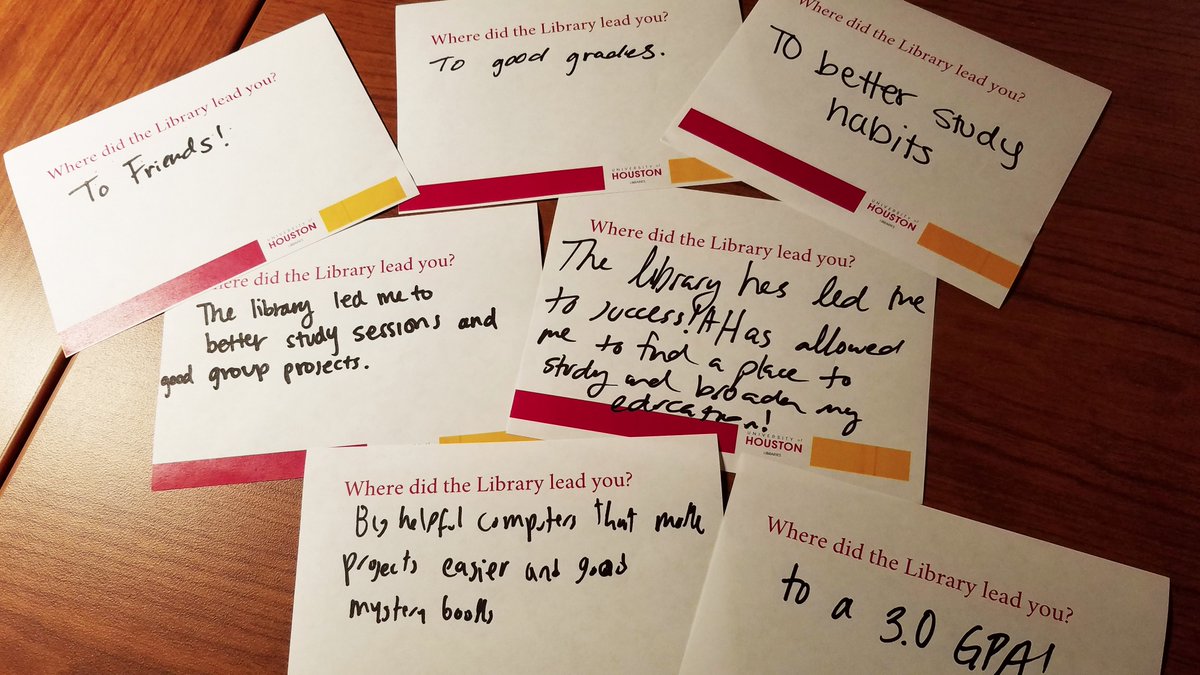 Where did the Library lead you?
To Friends!
UNIVERSITY of
HOUSTON
LIBRARIES
Where did the Library lead you?
To good grades.
UNIVERSITY of
HOUSTON
LIBRARIES
Where did the Library lead you?
TO better study
habits
UNIVERSITY of
HOUSTON
LIBRARIES
here did the Library lead you?
The library led me to
better study sessions and
good group projects.
Where did the Library lead you?
The library has led me
to success! It Has allowed
me to find a place to
study and broaden my
education!
UNIVERSITY of
HOUSTON
LIBRARIES
Where did the Library lead you?
Big helpful computers that make
projects easier and good
mystery books
Where did the Library lead you?
to a 3.0 GPA!